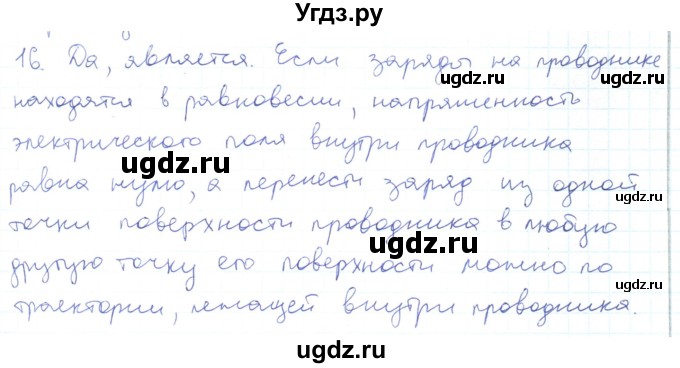 Угдз.ру
16. Да, является. Если заряды на проводнике
ugdz.ru ugdz.ru
находятся в равновесии, напряженность
электрического поля внутри проводника
ugdz.ru
равна нулю, а перенести заряд из одной
ugdz.ru
точки поверхности проводника в любую
ugdz.ru
другую точку его поверхности можно по
ugdz.ru
траектории, лежащей внутри проводника.
ugdz.ru